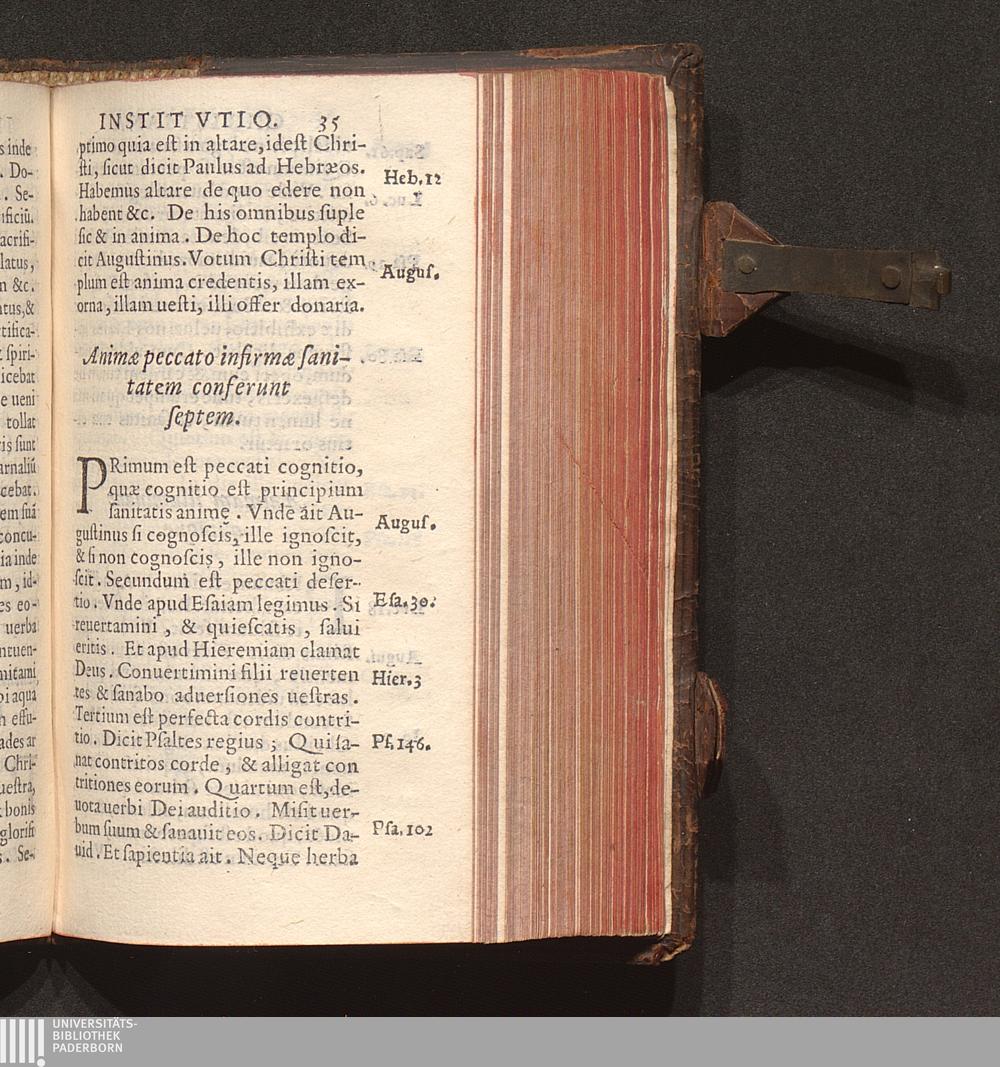 INSTITVTIO. 35
primo quia est in altare, idest Chri-
sti, sicut dicit Paulus ad Hebræos.
Heb.12
Habemus altare de quo edere non
habent &c. De his omnibus suple
sic & in anima. De hoc templo di-
cit Augustinus. Votum Christi tem
Augus.
plum est anima credentis, illam ex-
orna, illam uesti, illi offer donaria.
Animæ peccato infirmæ sani-
tatem conferunt
septem.
PRimum est peccati cognitio,
quæ cognitio est principium
sanitatis animę. Vnde ait Au-
Augus.
gustinus si cognoscis, ille ignoscit,
& si non cognoscis, ille non igno-
scit. Secundum est peccati deser-
tio. Vnde apud Esaiam legimus. Si
Esa.30.
reuertamini, & quiescatis, salui
eritis. Et apud Hieremiam clamat
Deus. Conuertimini filii reuerten
Hier.3
tes & sanabo aduersiones uestras.
Tertium est perfecta cordis contri-
tio. Dicit Psaltes regius; Qui sa-
Ps.146.
nat contritos corde, & alligat con
tritiones eorum. Quartum est, de-
uota uerbi Dei auditio. Misit uer-
bum suum & sanauit eos. Dicit Da-
Psa.102
uid. Et sapientia ait. Neque herba
s inde
. Do-
. Se-
ificiū.
acrifi-
latus,
n &c.
tus, &
tifica-
spiri-
icebat
e ueni
tollat
is sunt
arnaliū
cebat.
em suā
concu-
ia inde
m, id-
es eo-
uerba
ntuen-
mitami
bi aqua
n effu-
ades ar
Chri-
uestra,
bonis
glorifi
s. Se-
UNIVERSITÄTS-
BIBLIOTHEK
PADERBORN